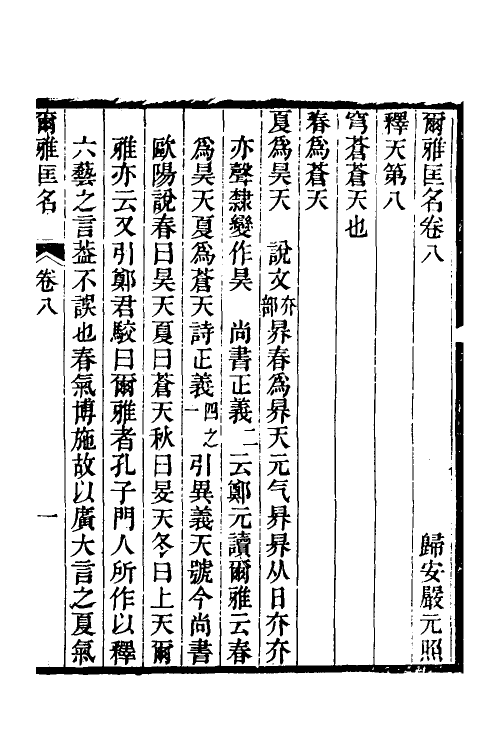 爾雅匡名卷八　歸安嚴元照
釋天第八
穹蒼蒼天也
春為蒼天
夏為昊天　說文夰部界春為界天元气界界从日夰夰
亦聲隸變作昊　尚書正義二云鄭元讀爾雅云春
為昊天夏為蒼天詩正義四之一引異義天號今尚書
歐陽說春曰昊天夏曰蒼天秋曰旻天冬曰上天爾
雅亦云又引鄭君駮曰爾雅者孔子門人所作以釋
六藝之言葢不誤也春氣博施故以廣大言之夏氣
爾雅匡名　卷八　一